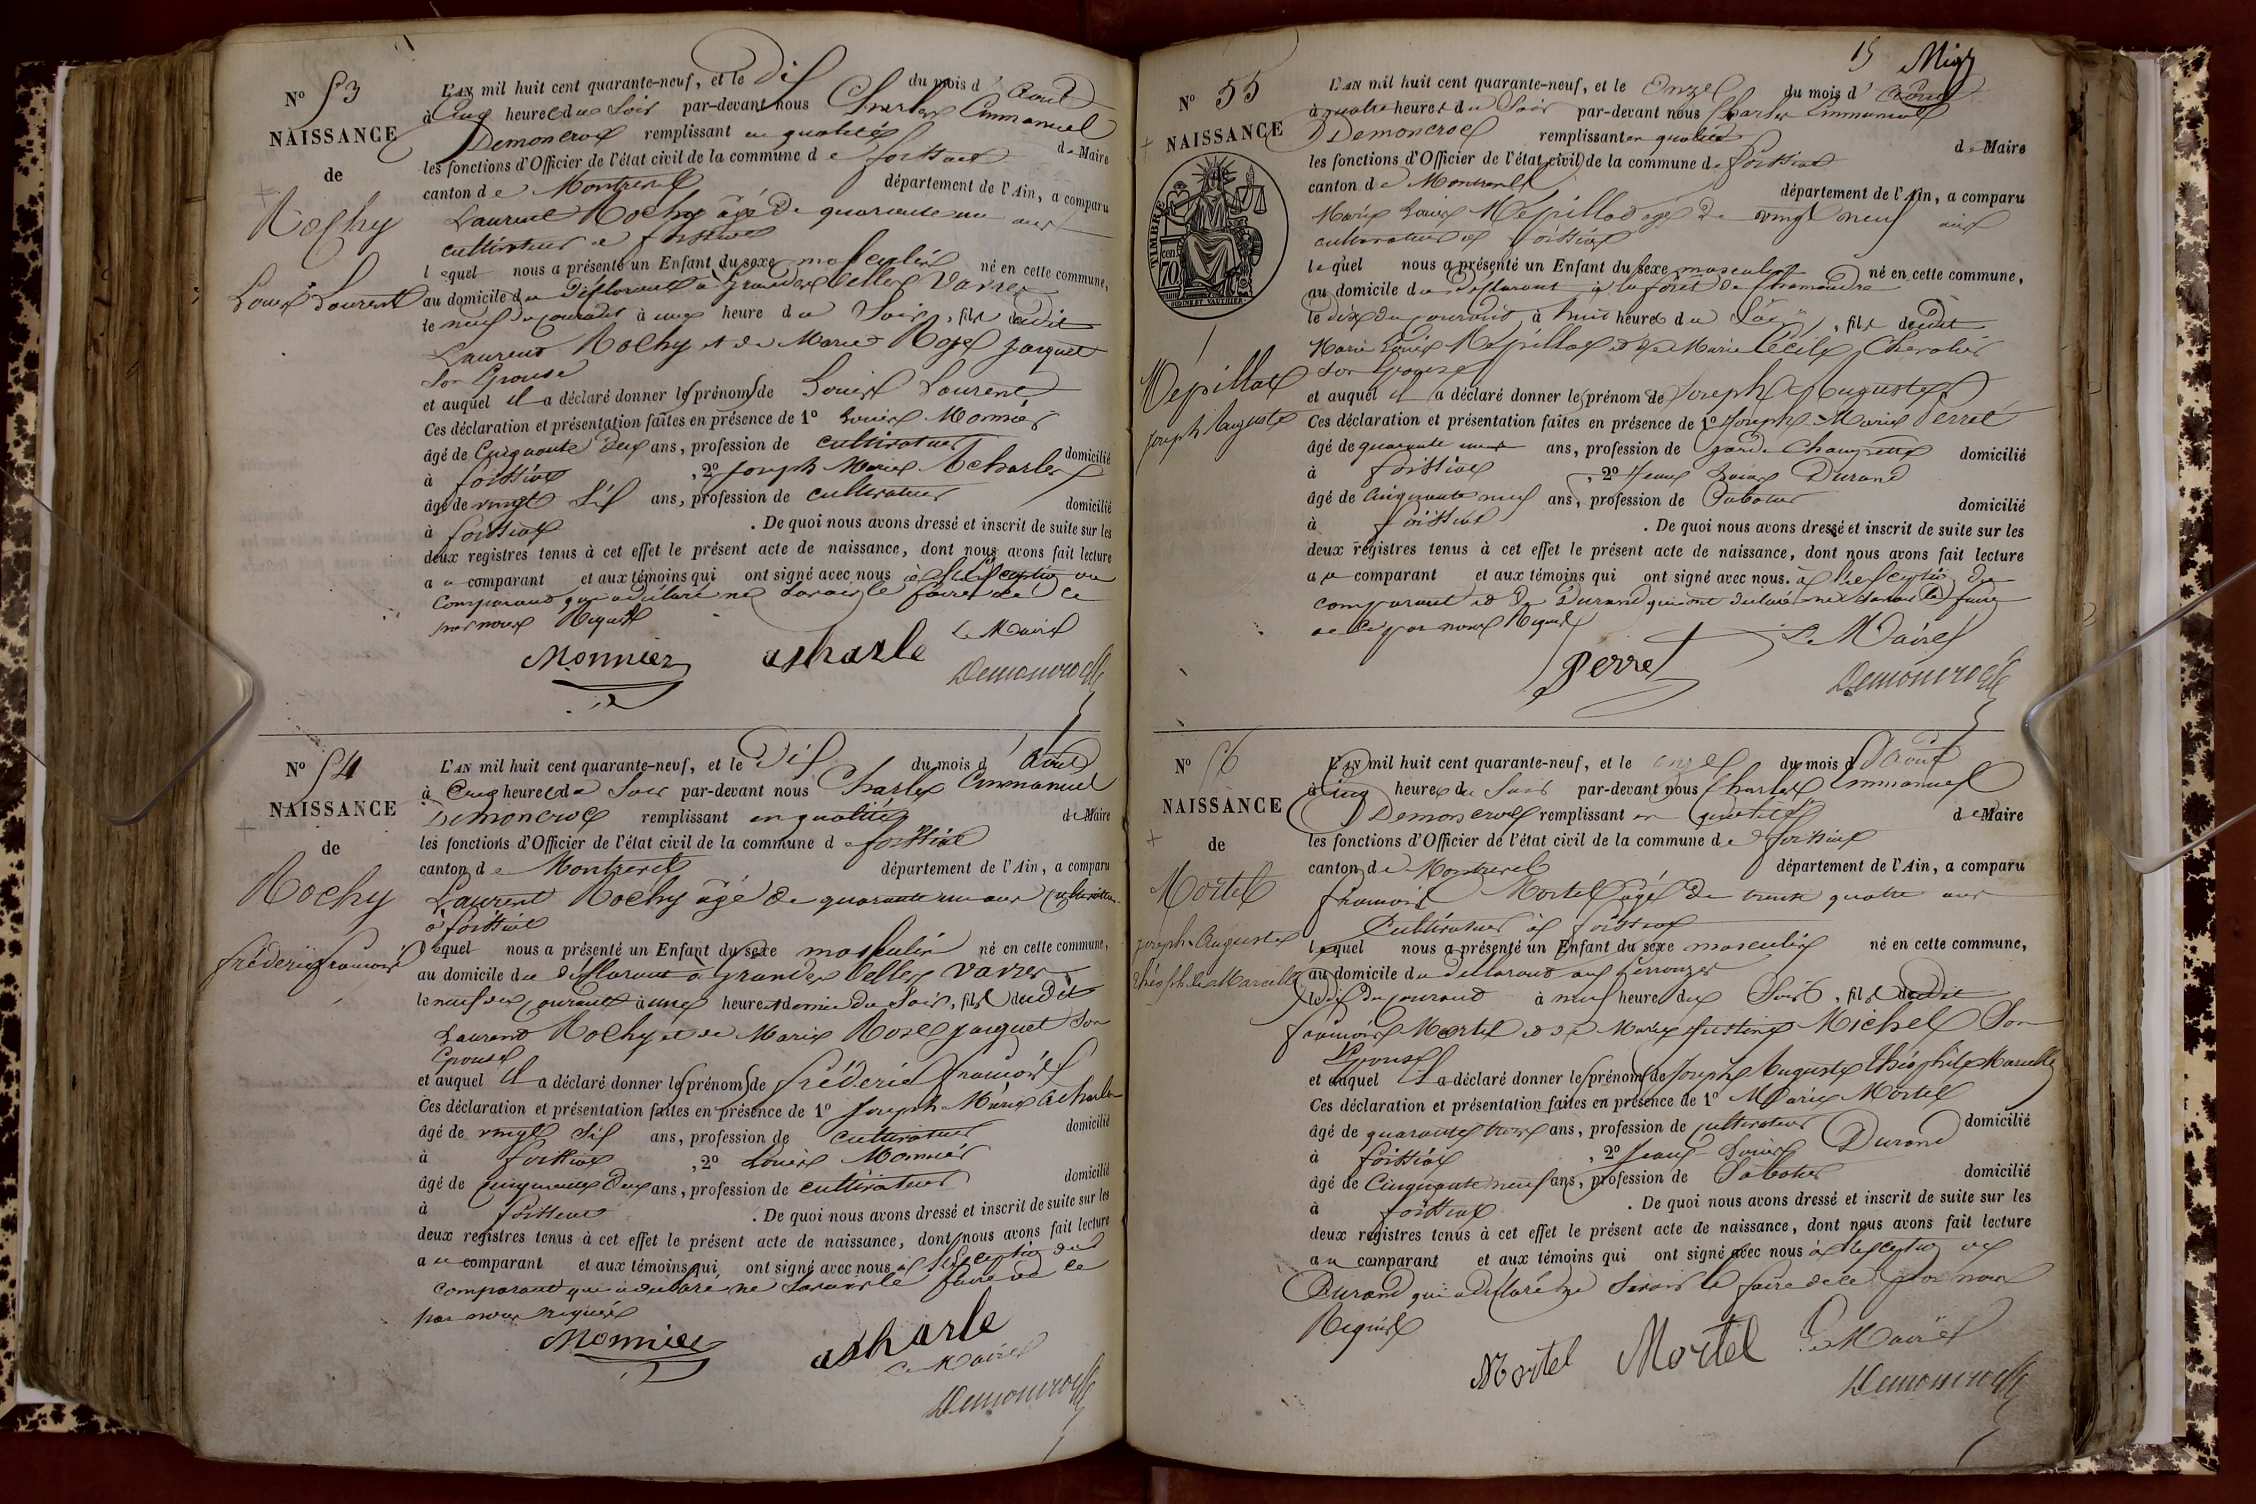 N.º 53
NAISSANCE
de
Rochy
Louis Laurent
L'AN mil huit cent quarante-neuf, et le Dix du mois d'Aout
à Cinq heures du Soir par-devant nous Charles Emmanuel
Demoncroix remplissant en qualité de Maire
les fonctions d'Officier de l'état civil de la commune de foissiat
canton de Montrevel département de l'Ain, a comparu
Laurent Rochy âgé de quarante un ans
cultivateur à foissiat
lequel nous a présenté un Enfant du sexe masculin né en cette commune,
au domicile du déclarant à grandes belles vavres
le neuf du courant à une heure du Soir, fils dudit
Laurent Rochy et de Marie Rose Jacquet
Son Epouse
et auquel il a déclaré donner les prénoms de Louis Laurent
Ces déclaration et présentation faites en présence de 1º Louis Monnier
âgé de Cinquante deux ans, profession de cultivateur domicilié
à foissiat, 2º Joseph Marie Acharles
âgé de vingt Six ans, profession de cultivateur domicilié
à foissiat. De quoi nous avons dressé et inscrit de suite sur les
deux registres tenus à cet effet le présent acte de naissance, dont nous avons fait lecture
au comparant et aux témoins qui ont signé avec nous à l'exception du
comparant qui a déclaré ne Savoir le faire de ce
par nous Requis
Le Maire
Monnier acharle Demoncroix
N.º 54
NAISSANCE
de
Rochy
fréderic françois
L'AN mil huit cent quarante-neuf, et le Dix du mois d'Aout
à Cinq heures du Soir par-devant nous Charles Emmanuel
Demoncroix remplissant en qualité de Maire
les fonctions d'Officier de l'état civil de la commune de foissiat
canton de Montrevel département de l'Ain, a comparu
Laurent Rochy âgé de quarante un ans Cultivateur
à foissiat
lequel nous a présenté un Enfant du sexe masculin né en cette commune,
au domicile du déclarant à grandes belles vavres
le neuf du courant à une heure et demie du Soir, fils dudit
Laurent Rochy et de Marie Rose Jacquet Son
Epouse
et auquel il a déclaré donner les prénoms de fréderic françois
Ces déclaration et présentation faites en présence de 1º Joseph Marie Acharles
âgé de vingt Six ans, profession de cultivateur domicilié
à foissiat, 2º Louis Monnier
âgé de Cinquante Deux ans, profession de cultivateur domicilié
à foissiat. De quoi nous avons dressé et inscrit de suite sur les
deux registres tenus à cet effet le présent acte de naissance, dont nous avons fait lecture
au comparant et aux témoins qui ont signé avec nous à l'exception du
comparant qui a déclaré ne Savoir le faire de ce
par nous requis
Monnier acharle
Le Maire
Demoncroix
15
N.º 55
NAISSANCE
TIMBRE
70
Mépillat
Joseph Auguste
L'AN mil huit cent quarante-neuf, et le Onze du mois d'Aout
à quatre heures du Soir par-devant nous Charles Emmanuel
Demoncroix remplissant en qualité de Maire
les fonctions d'Officier de l'état civil de la commune de foissiat
canton de Montrevel département de l'Ain, a comparu
Marie Louis Mépillat âgé de vingt neuf ans
cultivateur à foissiat
lequel nous a présenté un Enfant du sexe masculin né en cette commune,
au domicile du déclarant à la forêt de
le dix du courant à huit heures du Soir, fils dudit
Marie Louis Mépillat et de Marie Cécile Chevalier
Son Epouse
et auquel il a déclaré donner les prénom de Joseph Auguste
Ces déclaration et présentation faites en présence de 1º Joseph Marie Perret
âgé de quarante ans, profession de garde Champêtre domicilié
à foissiat, 2º Jean Louis Durand
âgé de Cinquante neuf ans, profession de Sabotier domicilié
à foissiat. De quoi nous avons dressé et inscrit de suite sur les
deux registres tenus à cet effet le présent acte de naissance, dont nous avons fait lecture
au comparant et aux témoins qui ont signé avec nous à l'exception du
comparant et de Durand qui ont déclaré ne Savoir le faire
de ce par nous Requis
Le Maire
Perret Demoncroix
N.º 56
NAISSANCE
de
Mortel
Joseph Auguste
théophile Marcelle
L'AN mil huit cent quarante-neuf, et le onze du mois d'Aout
à Cinq heures du Soir par-devant nous Charles Emmanuel
Demoncroix remplissant en qualité de Maire
les fonctions d'Officier de l'état civil de la commune de foissiat
canton de Montrevel département de l'Ain, a comparu
françois Mortel âgé de trente quatre ans
Cultivateur à foissiat
lequel nous a présenté un Enfant du sexe masculin né en cette commune,
au domicile du déclarant aux
le dix du courant à neuf heure du Soir, fils dudit
françois Mortel et de Marie Justine Michel Son
Epouse
et auquel il a déclaré donner les prénoms de Joseph Auguste théophile Marcelle
Ces déclaration et présentation faites en présence de 1º Marie Mortel
âgé de quarante trois ans, profession de cultivateur domicilié
à foissiat, 2º Jean Louis Durand
âgé de Cinquante neuf ans, profession de Sabotier domicilié
à foissiat. De quoi nous avons dressé et inscrit de suite sur les
deux registres tenus à cet effet le présent acte de naissance, dont nous avons fait lecture
au comparant et aux témoins qui ont signé avec nous à l'exception de
Durand qui a déclaré ne Savoir le faire de ce par nous
Requis
Mortel Mortel Le Maire
Demoncroix